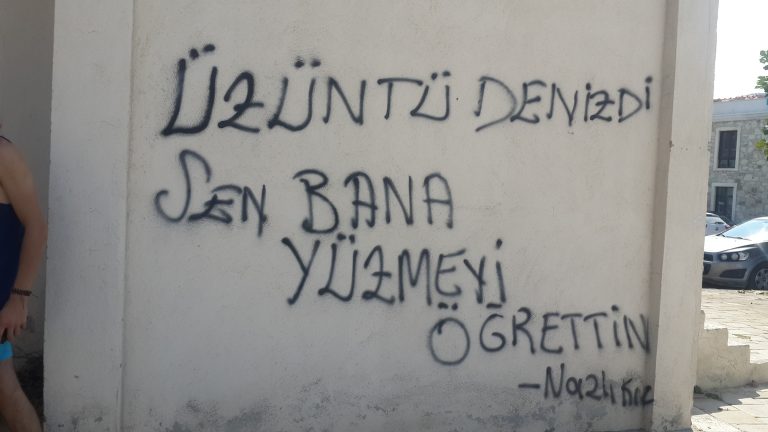 ÜZÜNTÜ DENİZDİ
SEN BANA
YÜZMEYİ
ÖĞRETTİN
-Nazlı